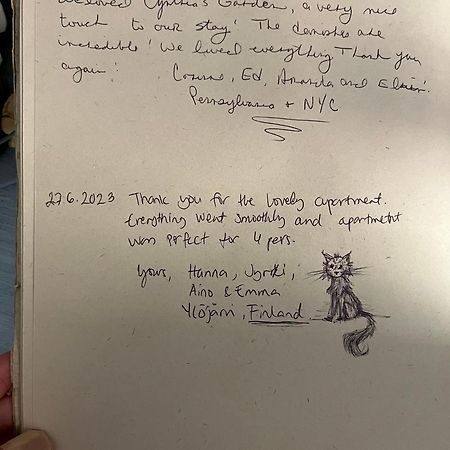 We loved Cynthia's Garden, a very nice
touch to our stay! The danishes are
incredible! We loved everything Thank you
again!
Ed, Amanda and
Pennsylvania + NYC
27.6.2023 Thank you for the lovely apartment.
Everything went smoothly and apartment
was perfect for 4 pers.
Yours, Hanna, Jyrki,
Aino & Emma
Ylöjärvi, Finland